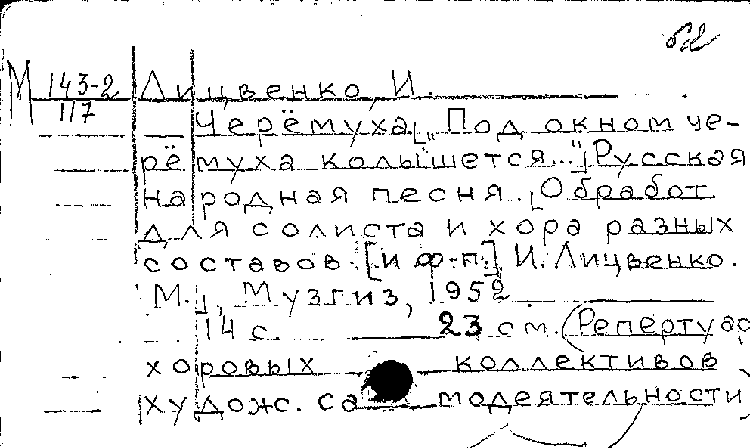 М 143-2 Лицвенко, И.
117
Черёмуха[„Под окном че-
рёмуха колышется..."] Русская
народная песня. [Обработ
для солиста и хора разных
составов. [и ф-п.] И. Лицвенко.
М., Музгиз, 1952
14 с. 23 см. (Репертуар
хоровых коллективов
худож. самодеятельности)